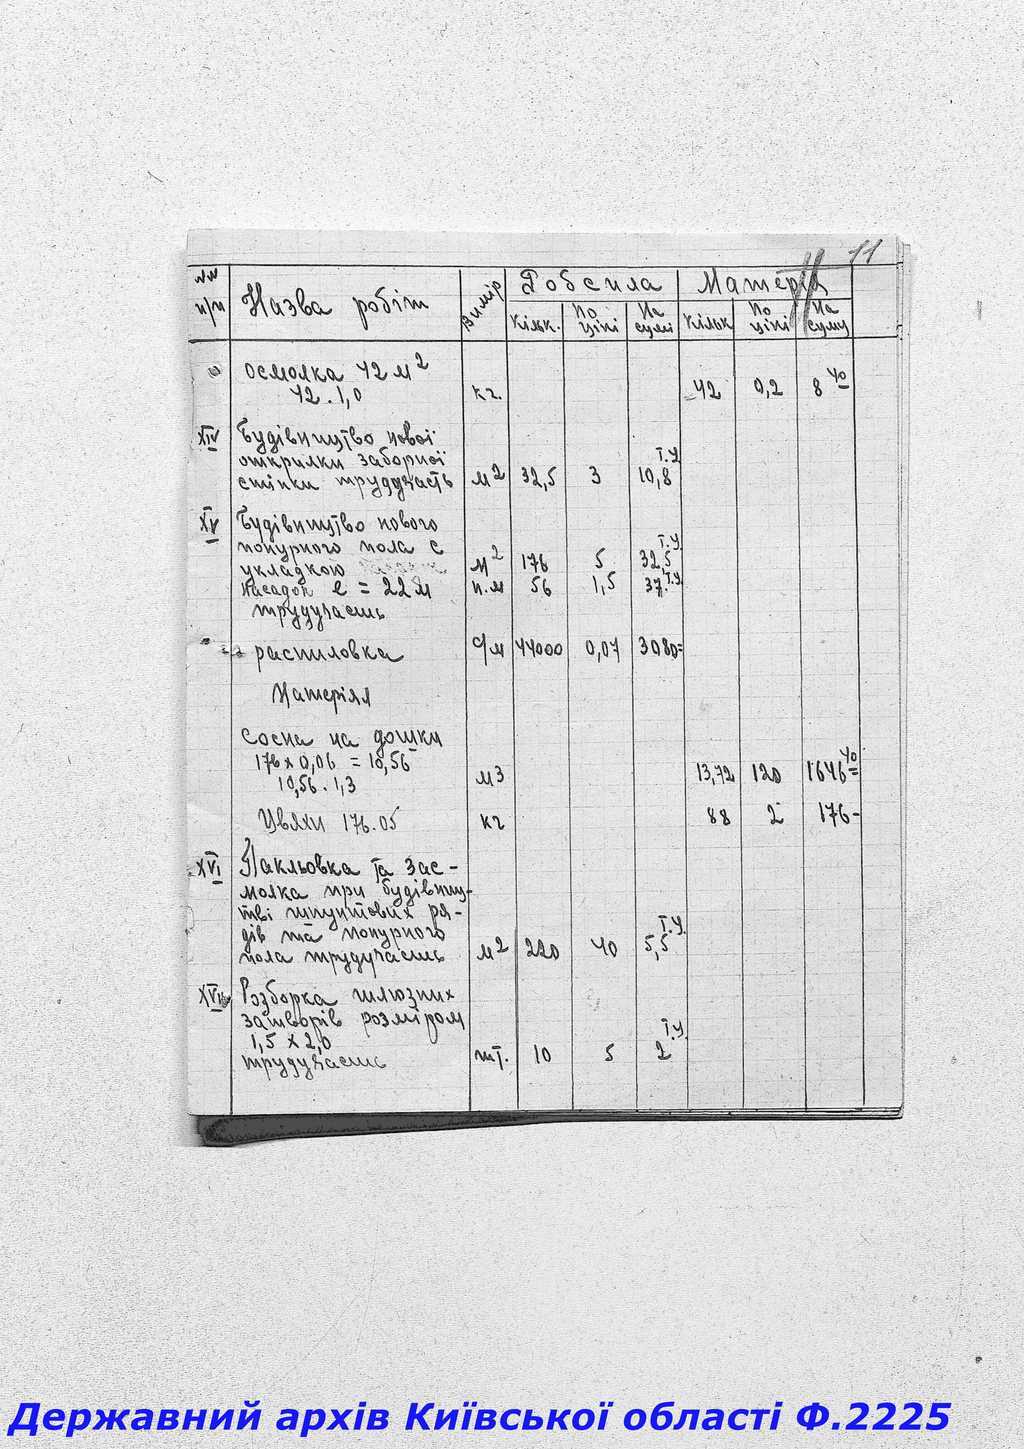 11
№№ п/п Назва робіт вимір Робсила Матерія
кільк. по ціні На сумі кільк по ціні На суму
осмолка 42 м2
42.1,0 кг. 42 0,2 8 40
XIV Будівництво нової
открилки заборної
стінки трудучасть м2 32,5 3 10,8 т.у.
XV Будівництво нового
понурного пола с
укладкою м2 176 5 32,5 т.у.
насадок l = 22 м п.м 56 1,5 37 т.у.
трудучасть
распиловка 44000 0,07 3080=
Матеріял
Сосна на дошки
176 х 0,06 = 10,56
10,56 . 1,3 м3 13,72 120 1646 40
Цвяхи 176.05 кг 88 2 176-
XVI Пакльовка та зас-
молка при будівниц-
тві шпунтових ря-
дів та понурного
пола трудучасть м2 220 40 5,5 т.у.
XVII Розборка шлюзних
затворів розміром
1,5 х 2,0
трудучасть шт. 10 5 2 т.у.
Державний архів Київської області Ф.2225